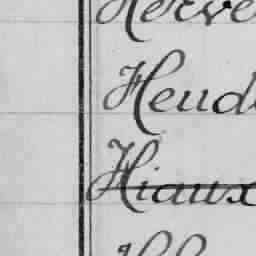 Herve
Heud
Hiaux